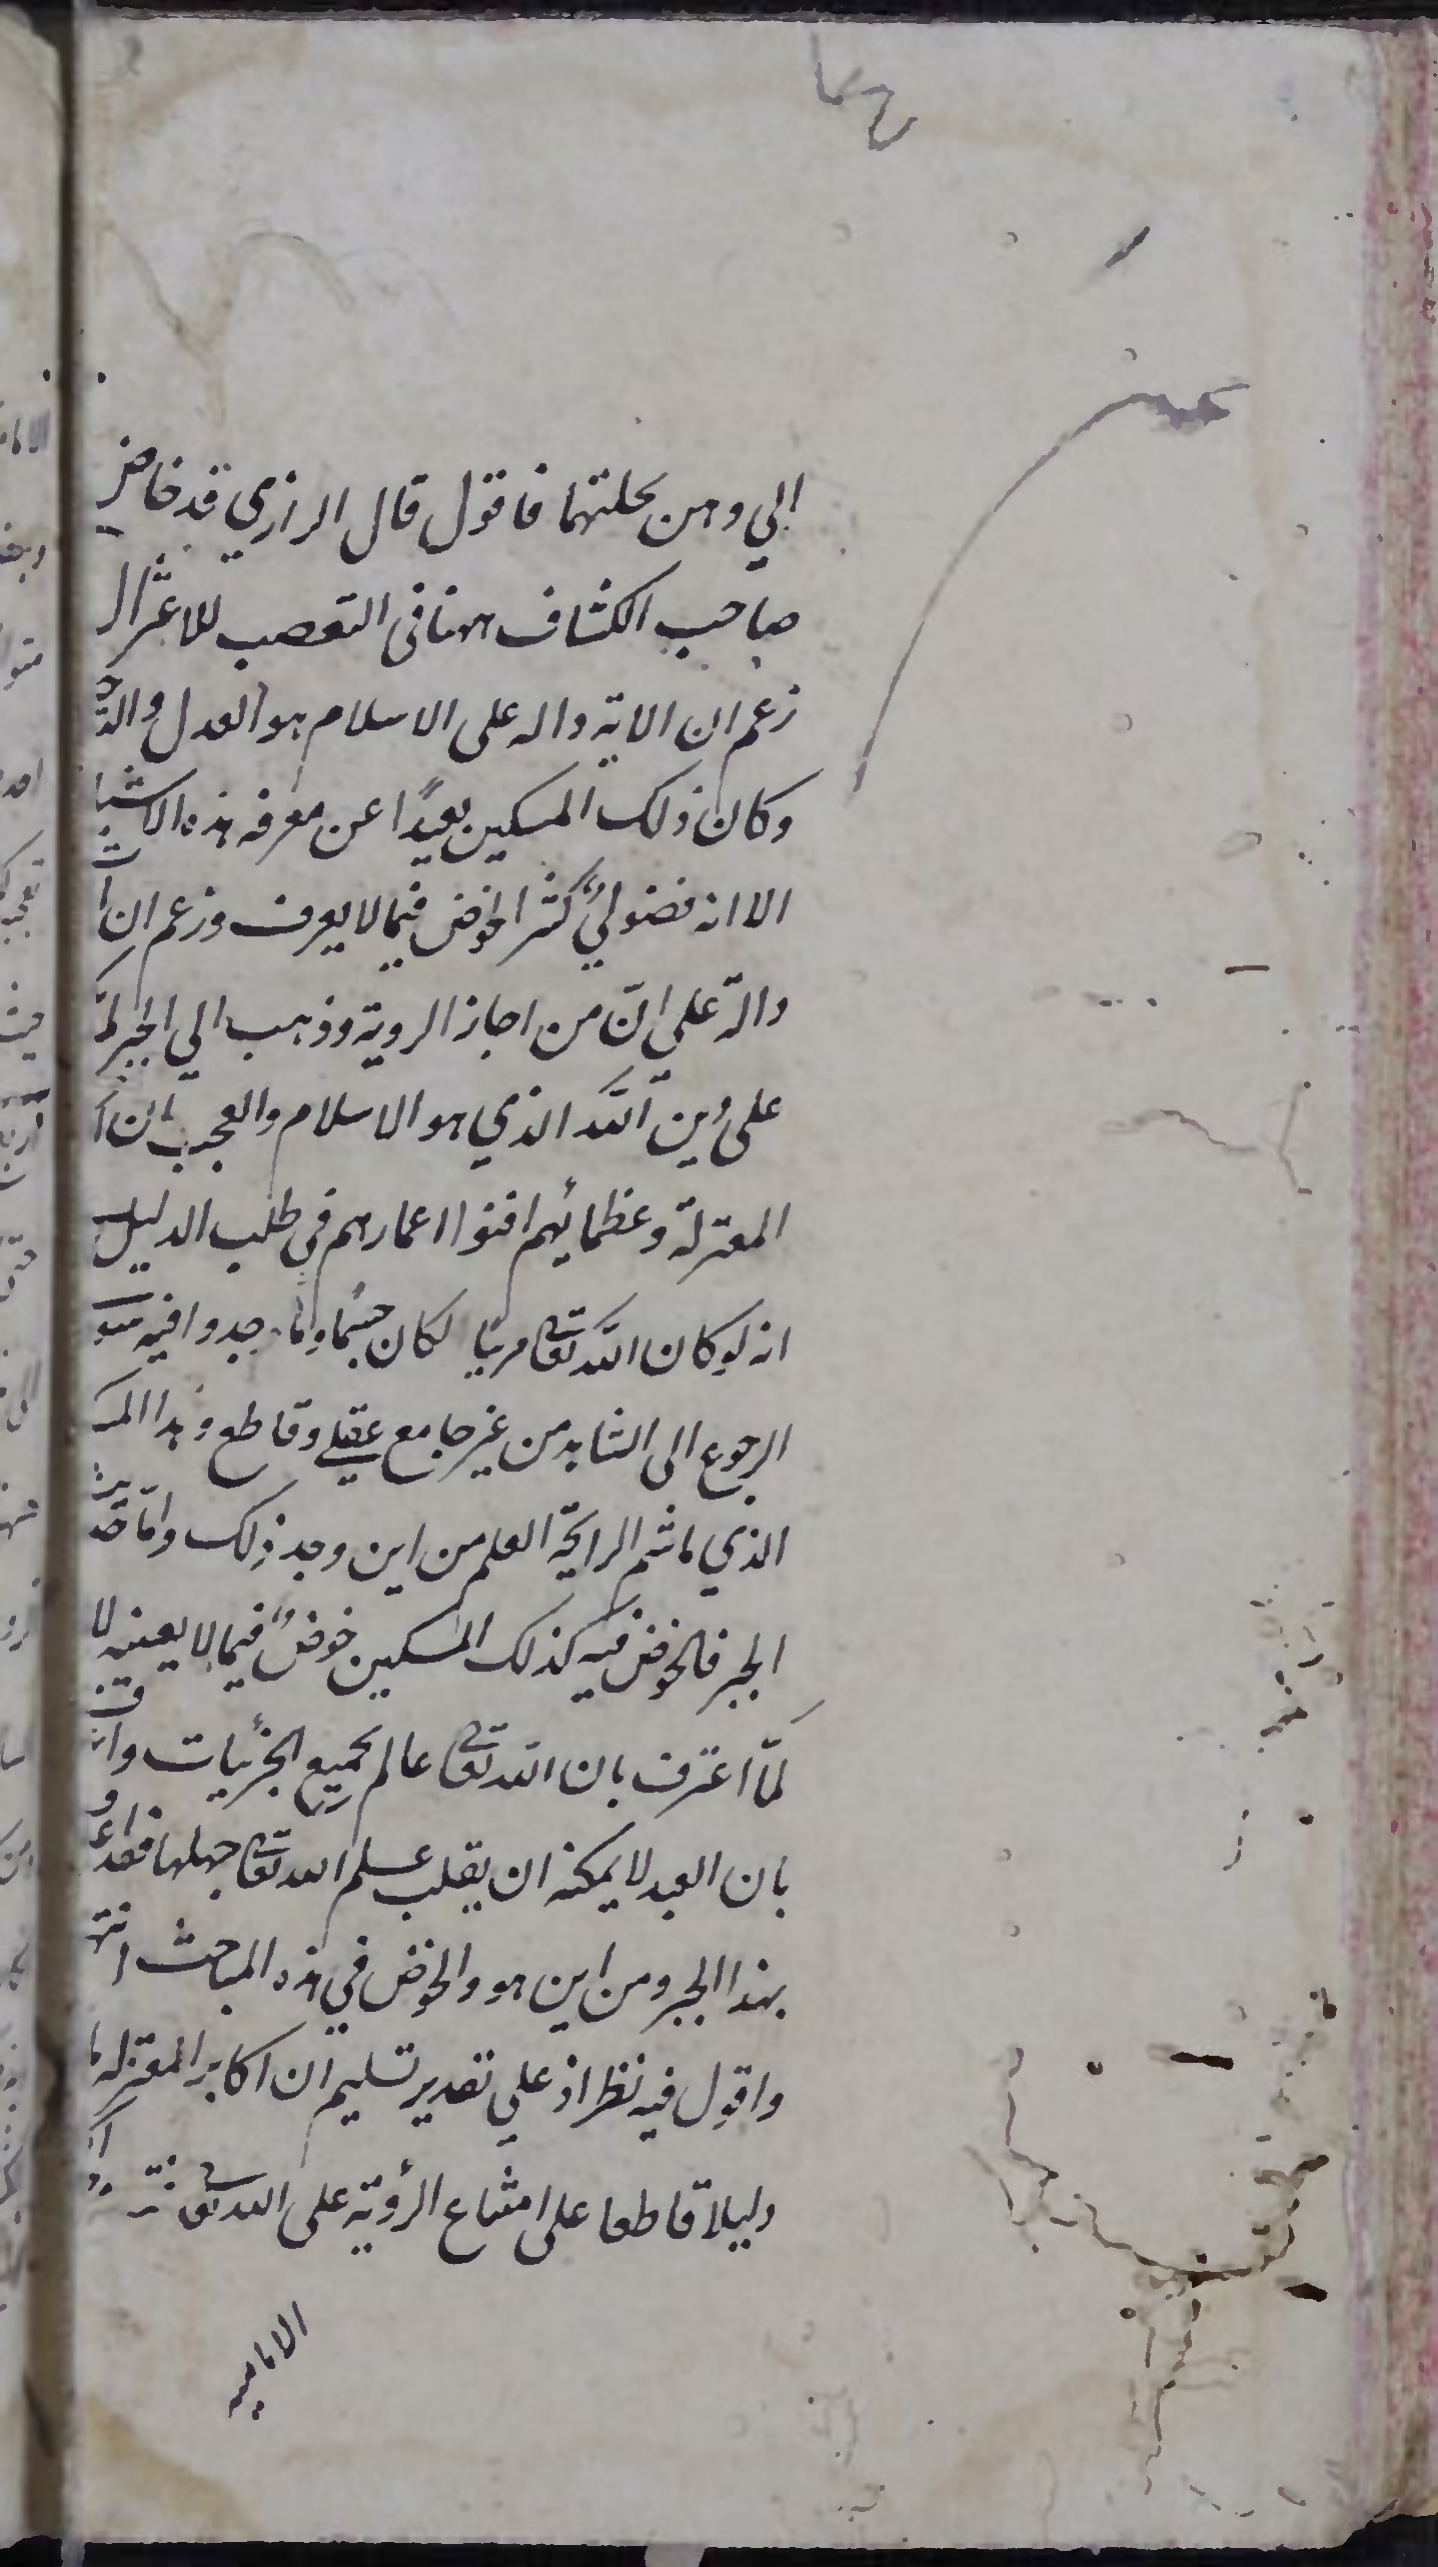 الي وهن نحلتهما فاقول قال الرازي قد خاض
صاحب الكشاف ههنا فى التعصب للاعتزال
زعم ان الاية داله على الاسلام هو العدل والتو
وكان ذلك المسكين بعيدًا عن معرفه هذه الاشيا
الا انه فضوليٌ كثير الخوض فيما لا يعرف وزعم ان
دالة علي انّ من اجاز الروية وذهب الي الجبر لم
على دين اللّه الذي هو الاسلام والعجب ان
المعتزلة وعظمائهم افنوا اعمارهم في طلب الدليل
انه لو كان اللّه تعالى مرئيا لكان جسمًا وما وجدوا فيه سو
الرجوع الى الشاهد من غير جامع عقلي وقاطع وهذا المـ
الذي ما شم الرايحة العلم من اين وجد ذلك وامّا حديث
الجبر فالخوض فيه كذلك المسكين خوضٌ فيما لا يعنيه لا
لمّا اعترف بان الله تعالى عالم بجميع الجزئيات واعترف
بان العبد لا يمكنه ان يقلب علم الله تعالى جهلا فقد
بهذا الجبر ومن اين هو والخوض في هذه المباحث انتهى
واقول فيه نظر اذ علي تقدير تسليم ان اكابر المعتزله ما
دليلا قاطعا على امتناع الرؤية على الله تعالى
الامامية